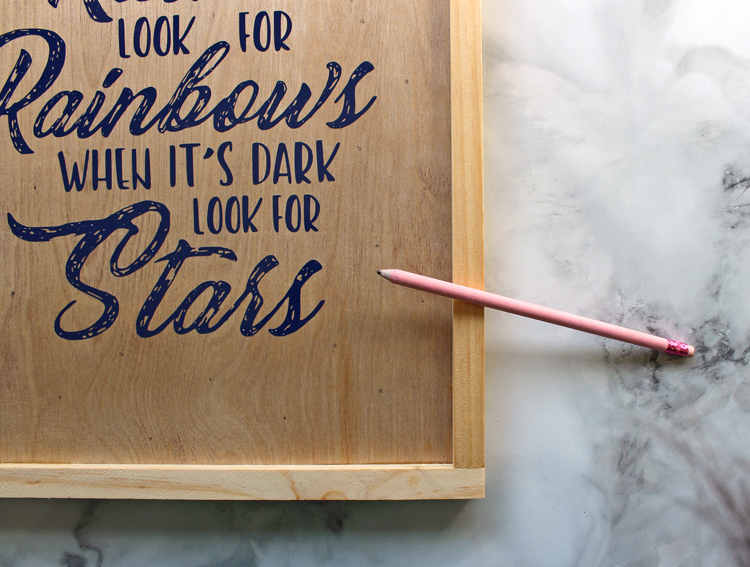 LOOK FOR
Rainbows
WHEN IT'S DARK
LOOK FOR
Stars